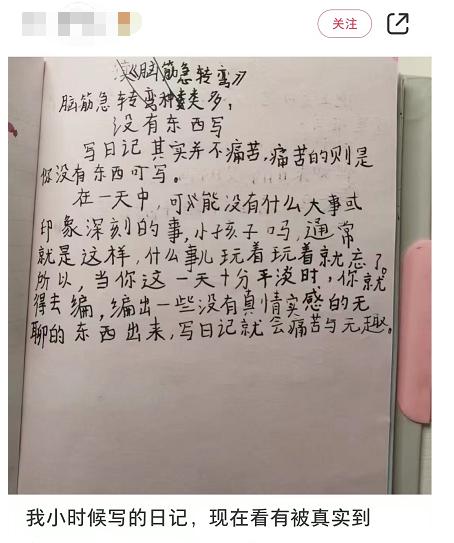 关注
读《脑筋急转弯》
脑筋急转弯种类多,
没有东西写
写日记其实并不痛苦,痛苦的则是
你没有东西可写。
在一天中,可能没有什么大事或
印象深刻的事,小孩子吗,通常
就是这样,什么事儿玩着玩着就忘了。
所以,当你这一天十分平淡时,你就
得去编,编出一些没有真情实感的无
聊的东西出来,写日记就会痛苦与无趣。
我小时候写的日记,现在看有被真实到